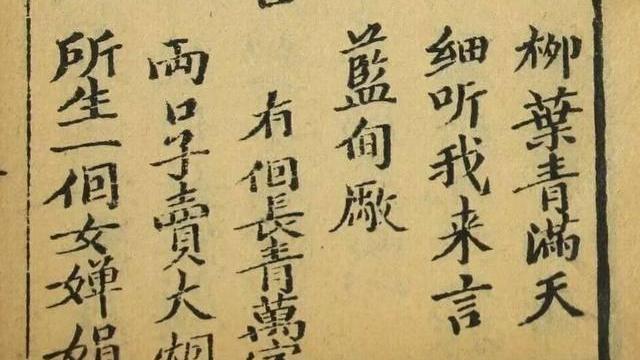 柳葉青滿天
细听我来言
藍甸廠
有佪長青萬
両口子賣大烟
所生一佪女婵娟